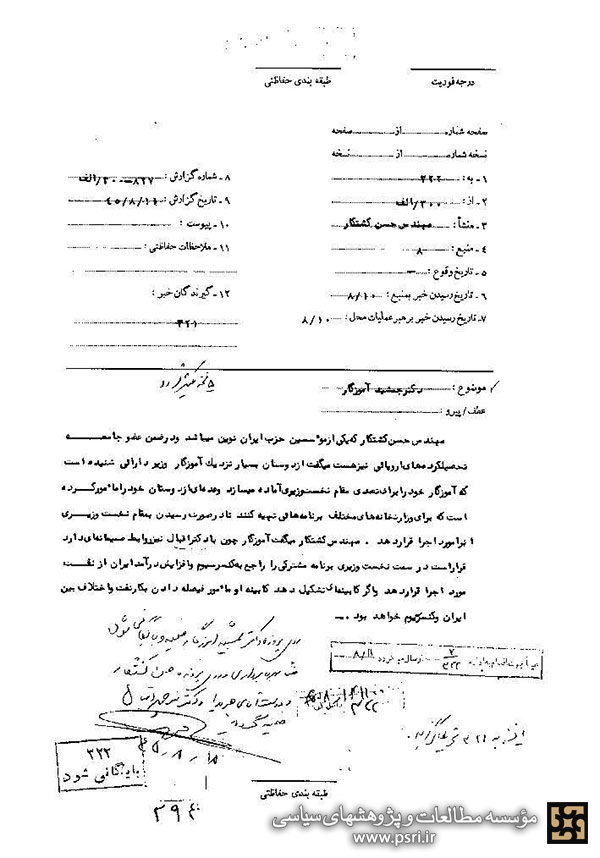 درجه فوریت
طبقه بندی حفاظتی
صفحه شماره از صفحه
نسخه شماره از نسخه
۱ـ به : ۳۲۲
۲ـ از : ۳۰۰/الف
۳ـ منشأ : مهندس حسن کشتکار
۴ـ منبع : ۸
۵ـ تاریخ وقوع : ـ
۶ـ تاریخ رسیدن خبر بمنبع : ۸/۱۰
۷ـ تاریخ رسیدن خبر برهبر عملیات محل : ۸/۱۰
۸ـ شماره گزارش : ۸۲۷-۳۰۰/الف
۹ـ تاریخ گزارش : ۴۵/۸/۱۱
۱۰ـ پیوست :
۱۱ـ ملاحظات حفاظتی :
۱۲ـ گیرندگان خبر :
۳۲۱
موضوع : دکتر جمشید آموزگار
عطف/پیرو :
مهندس حسن کشتکار که یکی از موسسین حزب ایران نوین میباشد و در ضمن عضو جامعه
تحصیلکرده های اروپائی نیز هست میگفت از دوستان بسیار نزدیک آموزگار وزیر دارائی شنیده است
که آموزگار خود را برای تصدی مقام نخست وزیری آماده میسازد وعده ای از دوستان خود را مامور کرده
است که برای وزارتخانه های مختلف برنامه هائی تهیه کنند تا در صورت رسیدن بمقام نخست وزیری
آنرا مورد اجرا قرار دهد . مهندس کشتکار میگفت آموزگار چون با دکتر اقبال نیز روابط صمیمانه ای دارد
قرار است در سمت نخست وزیری برنامه مشترکی را راجع به کنسرسیوم و افزایش درآمد ایران از نفت
مورد اجرا قرار دهد و اگر کابینه ای تشکیل دهد کابینه او مامور فیصله دادن بکار نفت و اختلاف بین
ایران و کنسرسیوم خواهد بود .
۴۵/۸/۱۸
۳۲۲
بایگانی شود
۳۹۴
طبقه بندی حفاظتی
مؤسسه مطالعات و پژوهشهای سیاسی
www.psri.ir